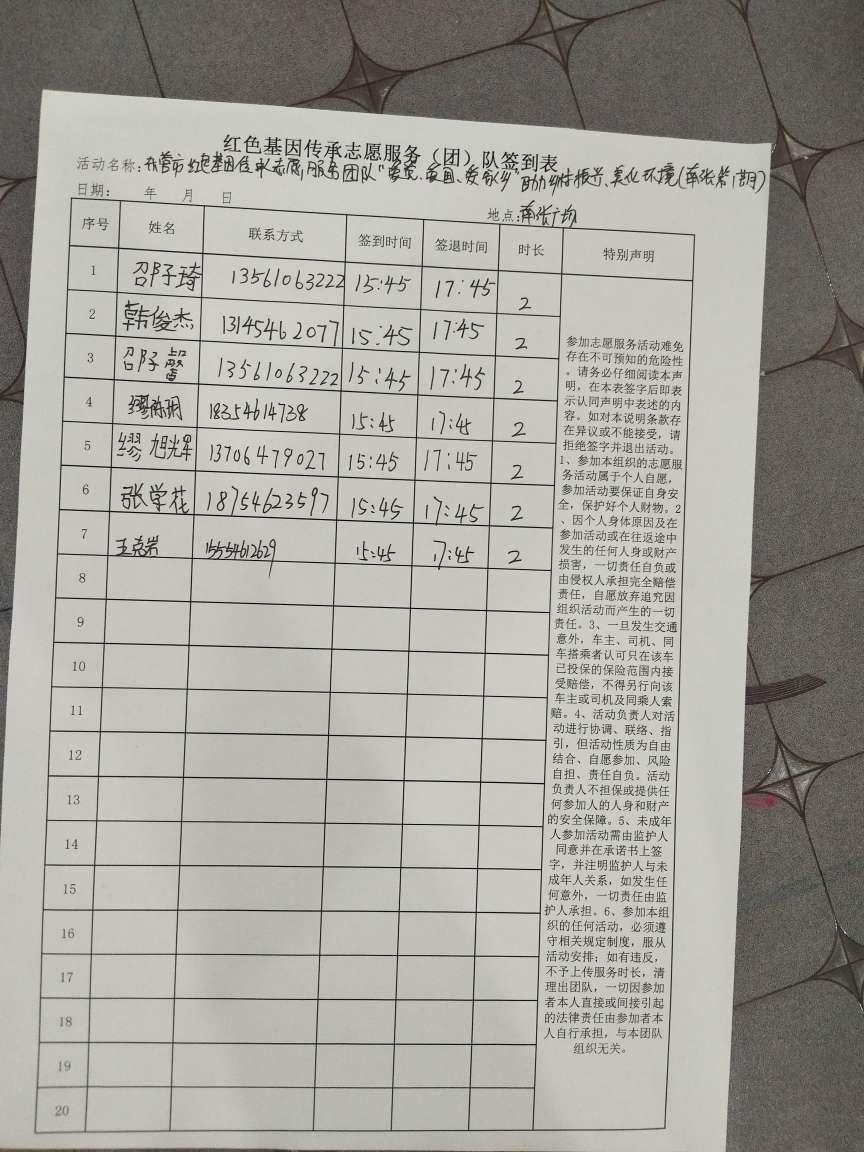 红色基因传承志愿服务（团）队签到表
活动名称：东营市红色基因传承志愿服务团队"爱党、爱国、爱家乡"助力乡村振兴、美化环境(南张第 期)
日期：　年　月　日
地点：南张广场
序号 姓名 联系方式 签到时间 签退时间 时长 特别声明
1 邵子琦 13561063222 15:45 17:45 2
2 韩俊杰 13145462077 15:45 17:45 2
3 邵子馨 13561063222 15:45 17:45 2
4 缪 18354614738 15:45 17:45 2
5 缪旭光 13706479027 15:45 17:45 2
6 张学花 18754623597 15:45 17:45 2
7 王克岩 15554612629 15:45 17:45 2
8
9
10
11
12
13
14
15
16
17
18
19
20
参加志愿服务活动难免
存在不可预知的危险性
。请务必仔细阅读本声
明，在本表签字后即表
示认同声明中表述的内
容。如对本说明条款存
在异议或不能接受，请
拒绝签字并退出活动。
1、参加本组织的志愿服
务活动属于个人自愿，
参加活动要保证自身安
全，保护好个人财物。2
、因个人身体原因及在
参加活动或在往返途中
发生的任何人身或财产
损害，一切责任自负或
由侵权人承担完全赔偿
责任，自愿放弃追究因
组织活动而产生的一切
责任。3、一旦发生交通
意外，车主、司机、同
车搭乘者认可只在该车
已投保的保险范围内接
受赔偿，不得另行向该
车主或司机及同乘人索
赔。4、活动负责人对活
动进行协调、联络、指
引，但活动性质为自由
结合、自愿参加、风险
自担、责任自负。活动
负责人不担保或提供任
何参加人的人身和财产
的安全保障。5、未成年
人参加活动需由监护人
同意并在承诺书上签
字，并注明监护人与未
成年人关系，如发生任
何意外，一切责任由监
护人承担。6、参加本组
织的任何活动，必须遵
守相关规定制度，服从
活动安排；如有违反，
不予上传服务时长，清
理出团队，一切因参加
者本人直接或间接引起
的法律责任由参加者本
人自行承担，与本团队
组织无关。